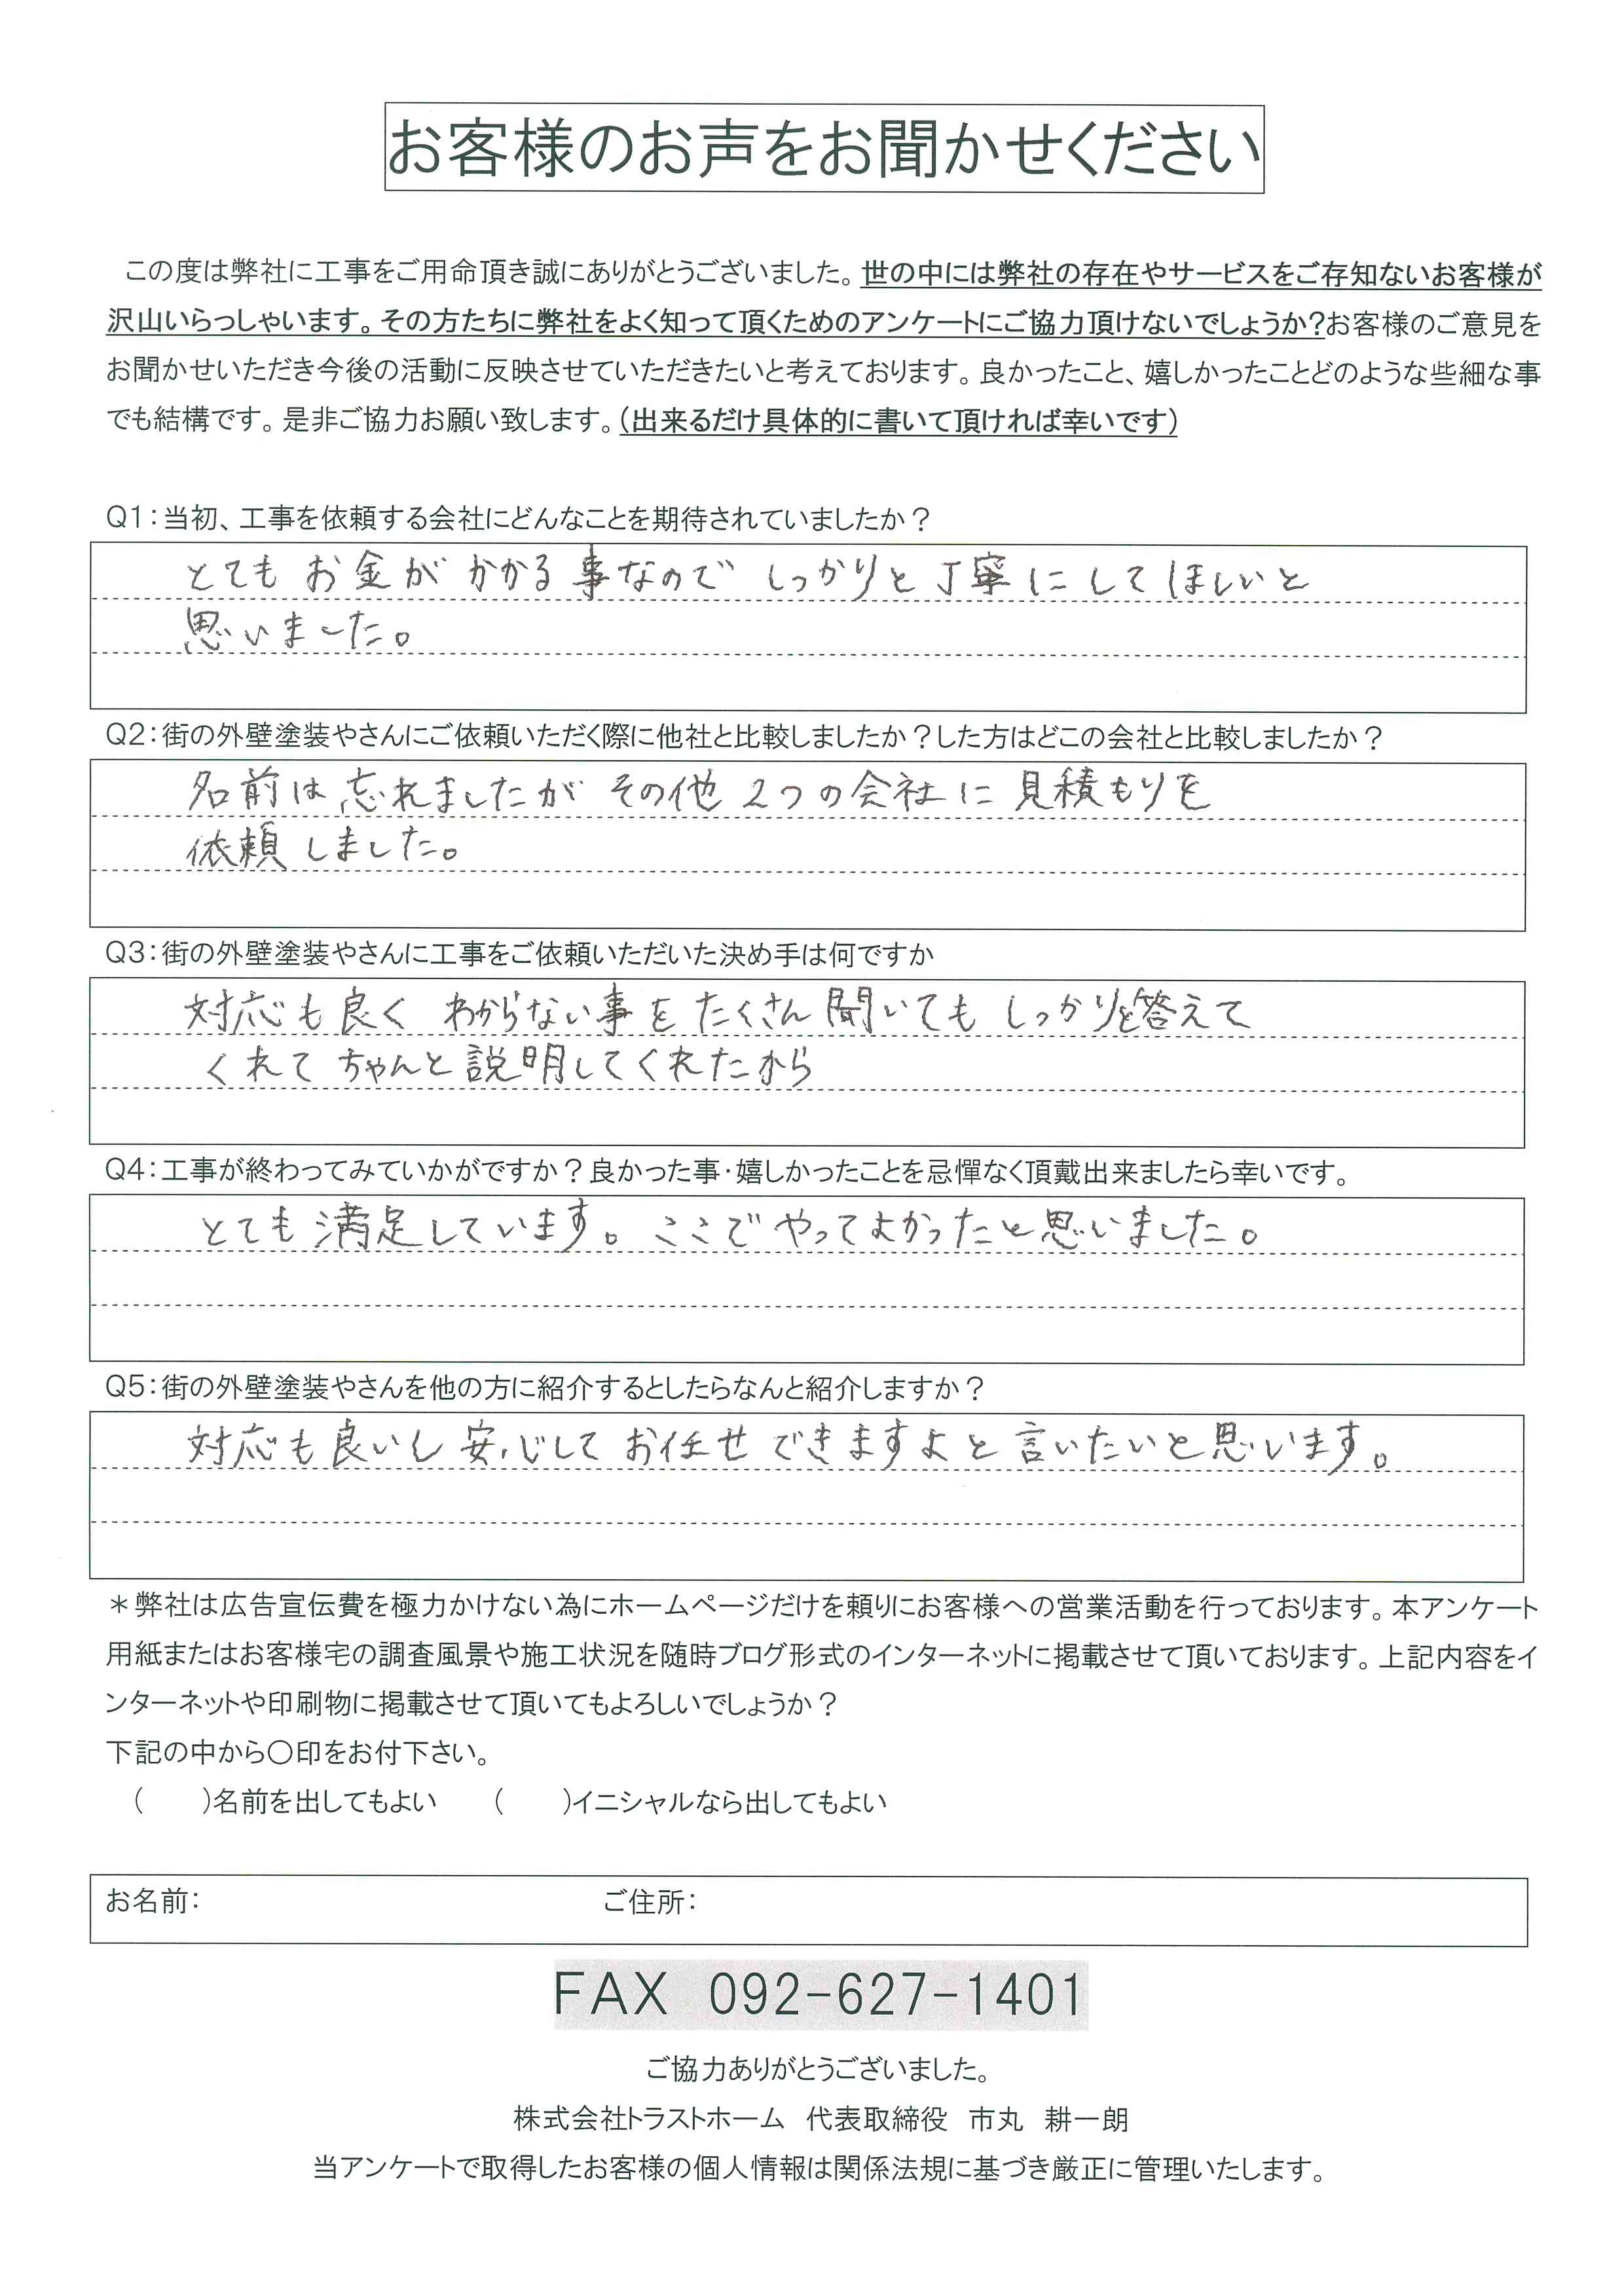 お客様のお声をお聞かせください
この度は弊社に工事をご用命頂き誠にありがとうございました。世の中には弊社の存在やサービスをご存知ないお客様が
沢山いらっしゃいます。その方たちに弊社をよく知って頂くためのアンケートにご協力頂けないでしょうか?お客様のご意見を
お聞かせいただき今後の活動に反映させていただきたいと考えております。良かったこと、嬉しかったことどのような些細な事
でも結構です。是非ご協力お願い致します。(出来るだけ具体的に書いて頂ければ幸いです)
Q1:当初、工事を依頼する会社にどんなことを期待されていましたか?
とてもお金がかかる事なので しっかりと丁寧にしてほしいと
思いました。
Q2:街の外壁塗装やさんにご依頼いただく際に他社と比較しましたか?した方はどこの会社と比較しましたか?
名前は忘れましたが その他 2つの会社に見積もりを
依頼しました。
Q3:街の外壁塗装やさんに工事をご依頼いただいた決め手は何ですか
対応も良く わからない事をたくさん聞いてもしっかりと答えて
くれて ちゃんと説明してくれたから
Q4:工事が終わってみていかがですか?良かった事・嬉しかったことを忌憚なく頂戴出来ましたら幸いです。
とても満足しています。ここでやってよかったと思いました。
Q5:街の外壁塗装やさんを他の方に紹介するとしたらなんと紹介しますか?
対応も良いし安心してお任せできますよと言いたいと思います。
＊弊社は広告宣伝費を極力かけない為にホームページだけを頼りにお客様への営業活動を行っております。本アンケート
用紙またはお客様宅の調査風景や施工状況を随時ブログ形式のインターネットに掲載させて頂いております。上記内容をイ
ンターネットや印刷物に掲載させて頂いてもよろしいでしょうか?
下記の中から〇印をお付下さい。
(　　)名前を出してもよい　　(　　)イニシャルなら出してもよい
お名前:　　ご住所:
FAX 092-627-1401
ご協力ありがとうございました。
株式会社トラストホーム 代表取締役 市丸 耕一朗
当アンケートで取得したお客様の個人情報は関係法規に基づき厳正に管理いたします。